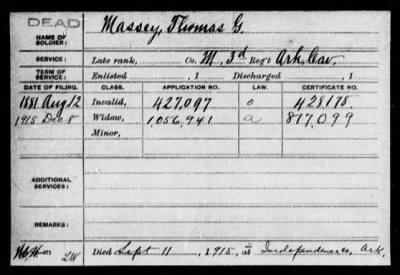 DEAD
NAME OF SOLDIER: Massey, Thomas G.
SERVICE: Late rank, Co. M, 3d Reg't Ark. Cav.
TERM OF SERVICE: Enlisted , 1 Discharged , 1
DATE OF FILING. CLASS. APPLICATION NO. LAW. CERTIFICATE NO.
1881 Aug 12 Invalid, 427,097 428175.
1915 Dec 8 Widow, 1,056,941 a 817,099
Minor,
ADDITIONAL SERVICES:
REMARKS:
Died Sept 11, 1915, at Independence co, Ark.